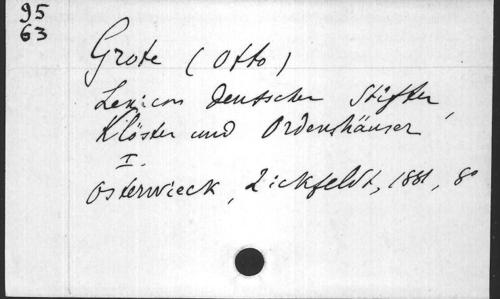 95
63
Grote (Otto)
Lexicon deutscher Stifter,
Klöster und Ordenshäuser
I.
Osterwieck, Zickfeldt, 1881, 8°